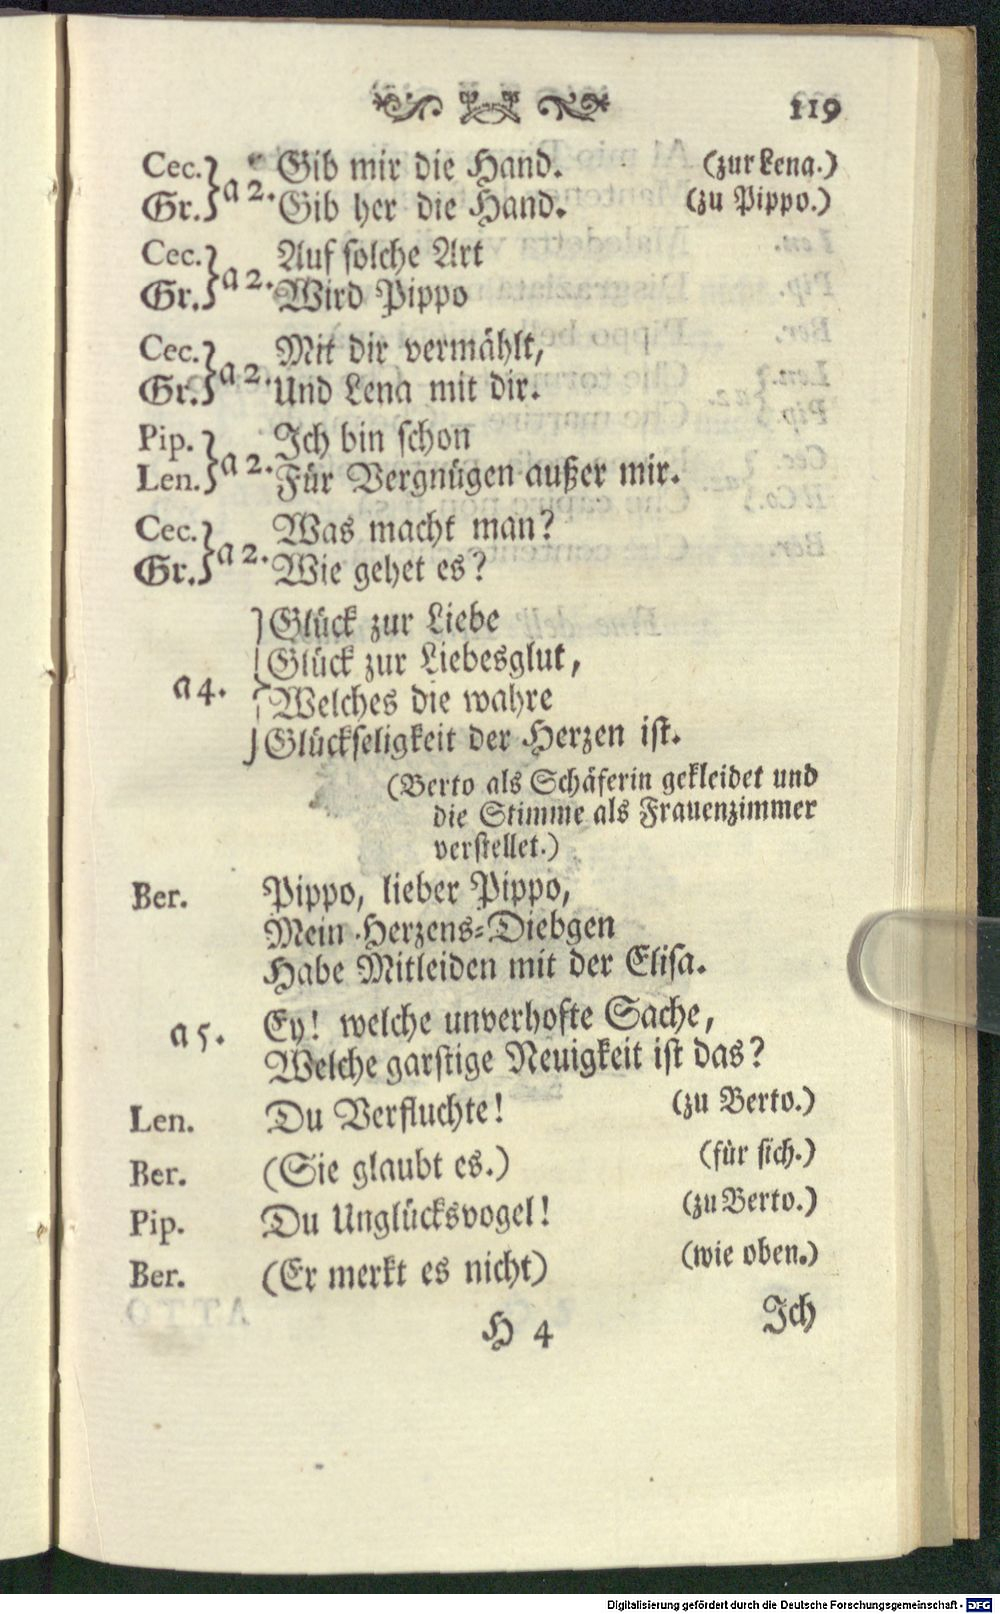 119
Cec. } a 2. Gib mir die Hand. (zur Lena.)
Gr. } Gib her die Hand. (zu Pippo.)
Cec. } a 2. Auf solche Art
Gr. } Wird Pippo
Cec. } a 2. Mit dir vermählt,
Gr. } Und Lena mit dir.
Pip. } a 2. Ich bin schon
Len. } Für Vergnügen außer mir.
Cec. } a 2. Was macht man?
Gr. } Wie gehet es?
Glück zur Liebe
Glück zur Liebesglut,
a 4. Welches die wahre
Glückseligkeit der Herzen ist.
(Berto als Schäferin gekleidet und
die Stimme als Frauenzimmer
verstellet.)
Ber. Pippo, lieber Pippo,
Mein Herzens-Diebgen
Habe Mitleiden mit der Elisa.
a 5. Ey! welche unverhofte Sache,
Welche garstige Neuigkeit ist das?
Len. Du Verfluchte! (zu Berto.)
Ber. (Sie glaubt es.) (für sich.)
Pip. Du Unglücksvogel! (zu Berto.)
Ber. (Er merkt es nicht) (wie oben.)
H 4 Ich
Digitalisierung gefördert durch die Deutsche Forschungsgemeinschaft - DFG